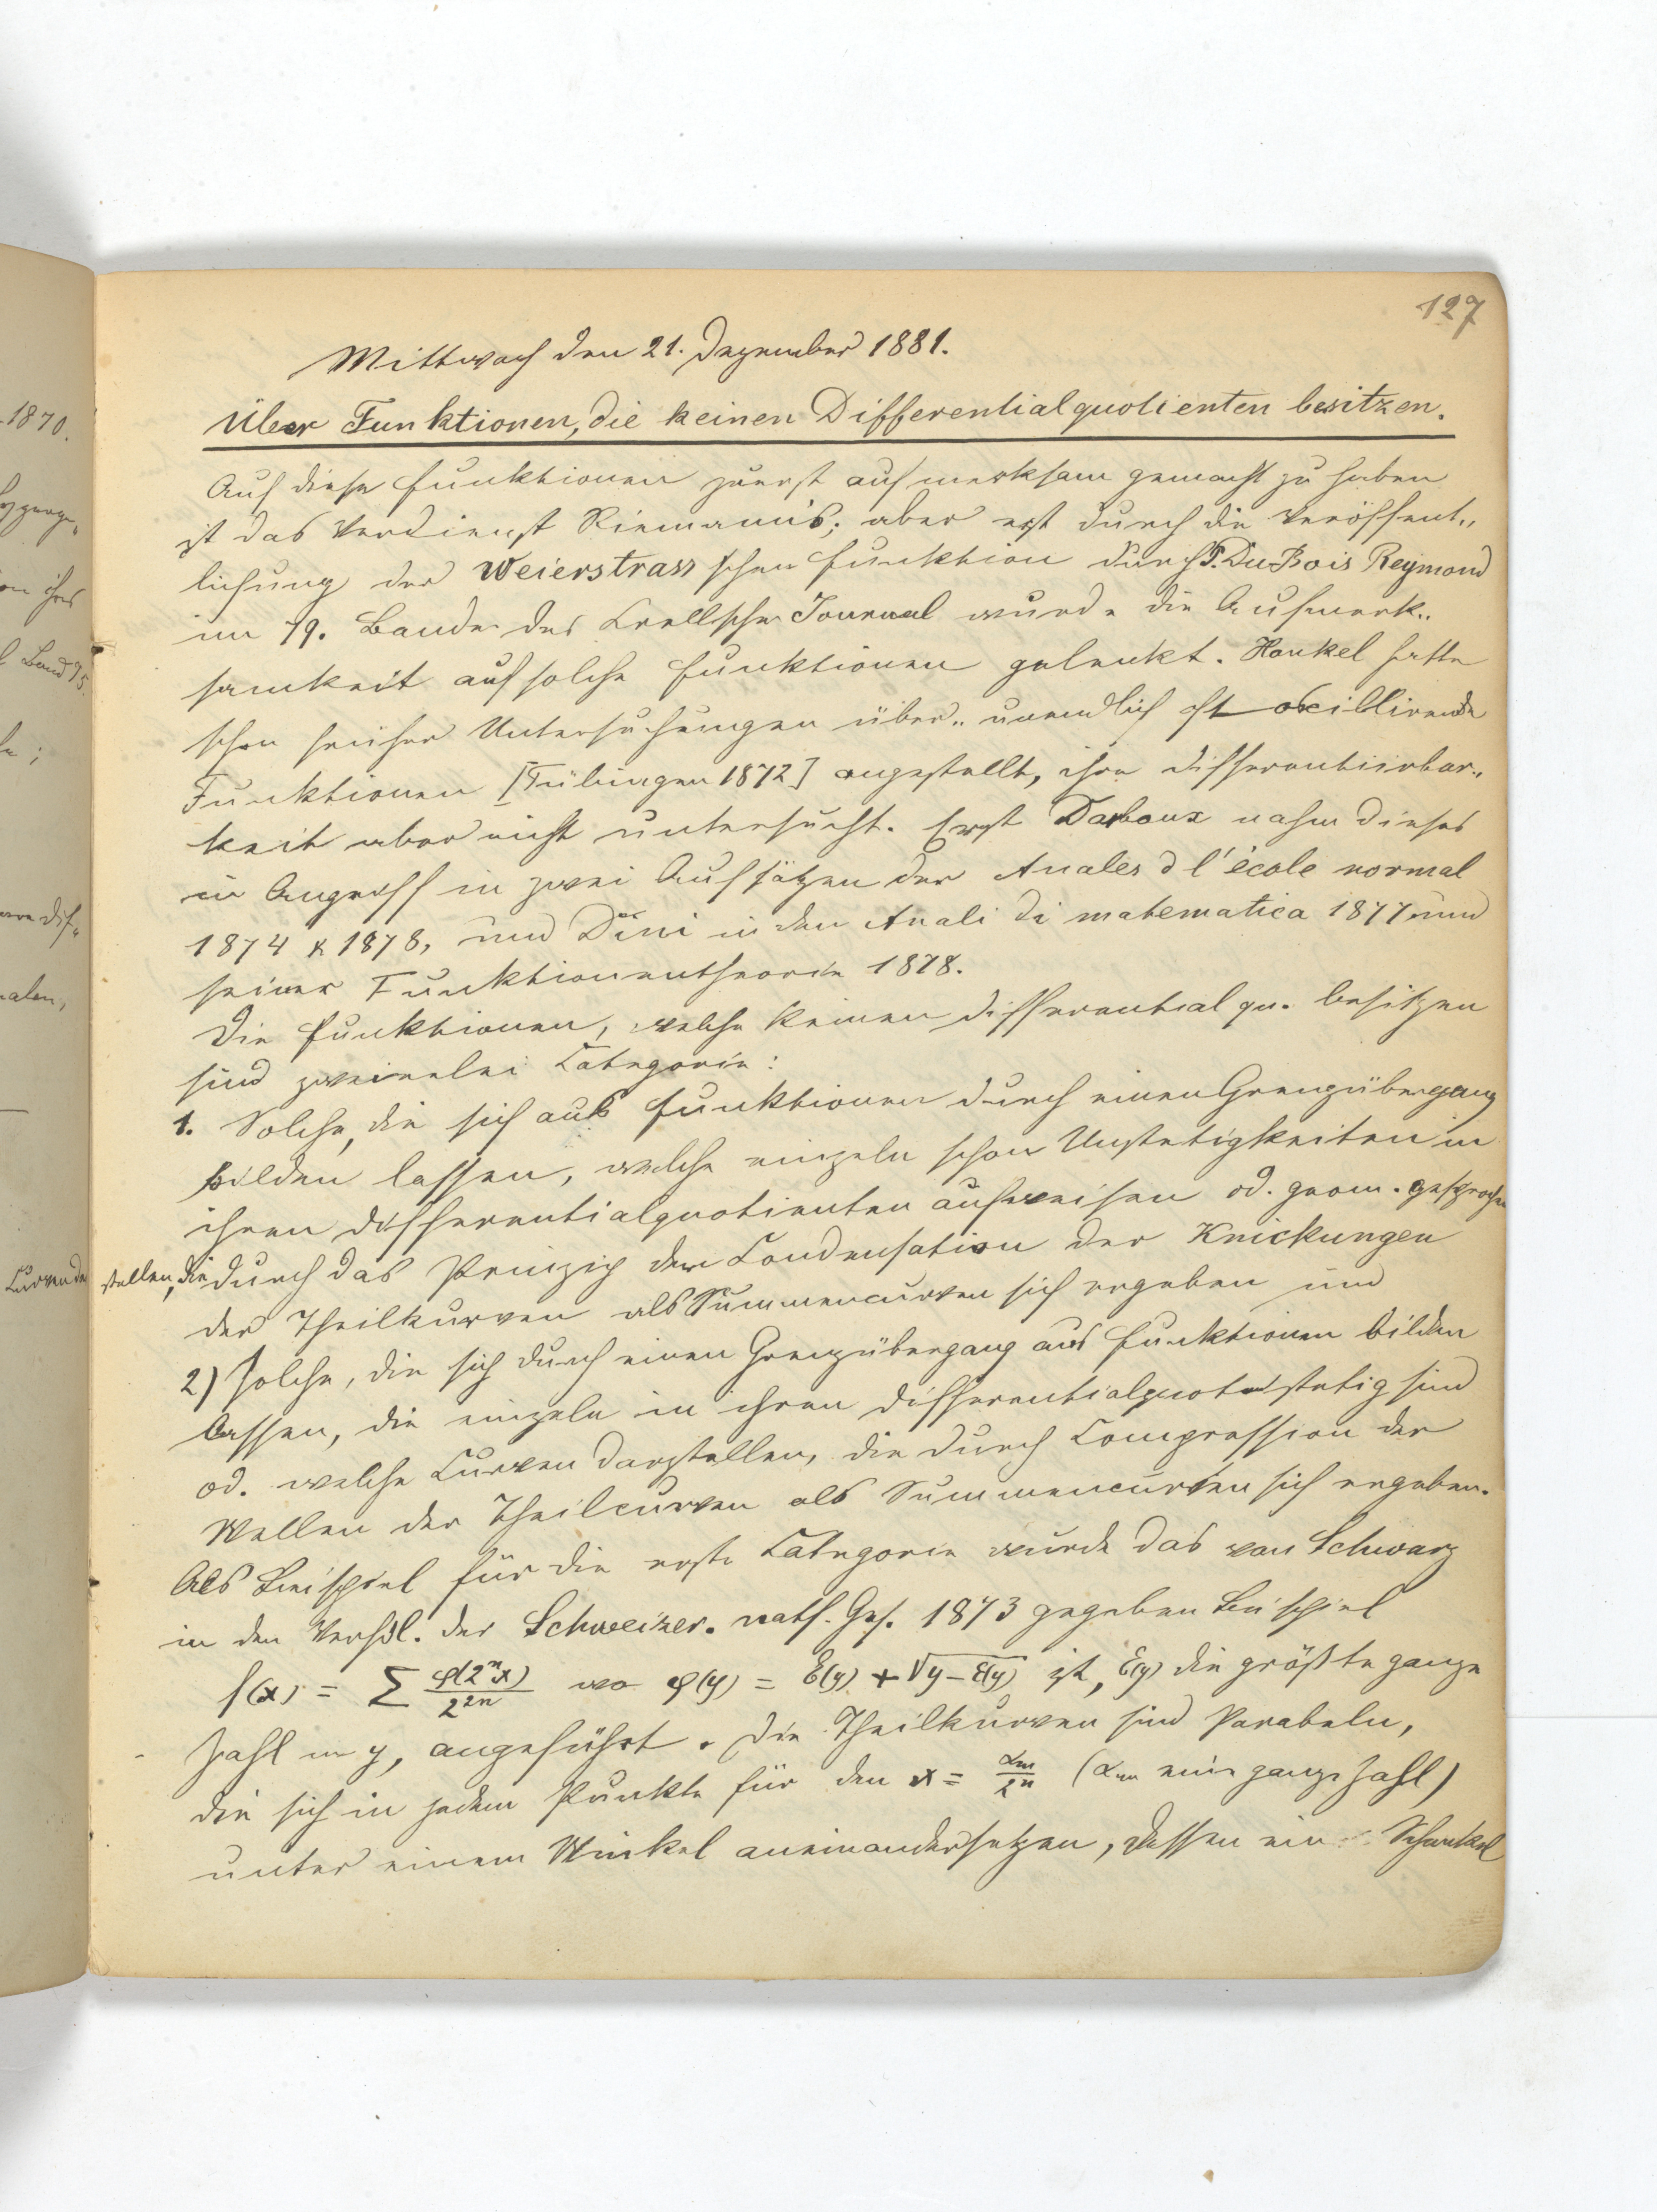 127
Mittwoch den 21. Dezember 1881.
Über Funktionen, die keinen Differentialquotienten besitzen.
Auf diese Funktionen zuerst aufmerksam gemacht zu haben
ist das Verdienst Riemanns; aber erst durch die Veröffent„
lichung der Weierstrass'schen Funktion durch P. Du Bois Reymond
im 79. Bande des Crellschen Journal wurde die Aufmerk„
samkeit auf solche Funktionen gelenkt. Hankel hatte
schon früher Untersuchungen über „unendlich oft oscillirende
Funktionen [Tübingen 1872] angestellt, ihre Differentiirbar„
keit aber nicht untersucht. Erst Darboux nahm dieses
in Angriff in zwei Aufsätzen der Anales d l'école normal
1874 & 1878, und Dini in den Anali di matematica 1877 und
seiner Funktionentheorie 1878.
Die Funktionen, welche keinen Differentialqu. besitzen
sind zweierlei Categorie:
1. Solche, die sich aus Funktionen durch einen Grenzübergang
bilden lassen, welche einzeln schon Unstetigkeiten in
ihren Differentialquotienten aufweisen od. geom. gesprochen
Curven dar stellen, die durch das Prinzip der Condensation der Knickungen
der Theilkurven als Summencurven sich ergeben und
2) solche, die sich durch einen Grenzübergang aus Funktionen bilden
lassen, die einzeln in ihren Differentialquot. stetig sind
od. welche Curven darstellen, die durch Compression der
Wellen der Theilcurven als Summencurven sich ergeben.
Als Beispiel für die erste Categorie wurde das von Schwarz
in den Verhdl. der Schweizer. natf. Ges. 1873 gegeben Beispiel
f(x) = Σ φ(2ⁿx)/2²ⁿ wo φ(y) = E(y) + √y−E(y) ist, E(y) die größte ganze
Zahl in y, angeführt. Die Theilkurven sind Parabeln,
die sich in jedem Punkte für den x = αₘ/2ⁿ (αₘ eine ganze Zahl)
unter einem Winkel aneinandersetzen, dessen ein Schenkel
1870.
Band 75.